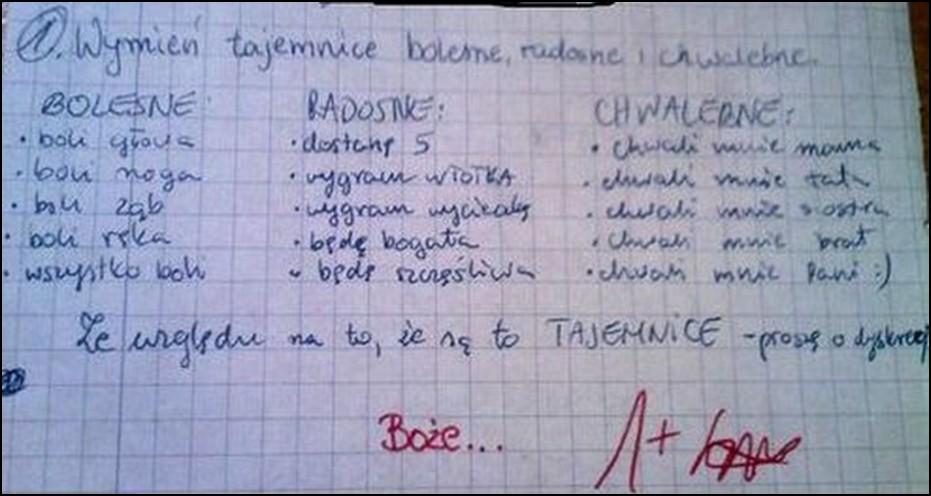 1. Wymień tajemnice bolesne, radosne i chwalebne.
BOLESNE: RADOSNE: CHWALEBNE:
• boli głowa • dostanę 5 • chwali mnie mama
• boli noga • wygram w TOTKA • chwali mnie tata
• boli ząb • wygram wycieczkę • chwali mnie siostra
• boli ręka • będę bogata • chwali mnie brat
• wszystko boli • będę szczęśliwa • chwali mnie Pani :)
Ze względu na to, że są to TAJEMNICE - proszę o dyskrecj
Boże... 1+